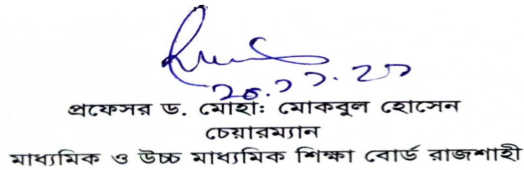 ২০.১১.২১
প্রফেসর ড. মোহাঃ মোকবুল হোসেন
চেয়ারম্যান
মাধ্যমিক ও উচ্চ মাধ্যমিক শিক্ষা বোর্ড রাজশাহী